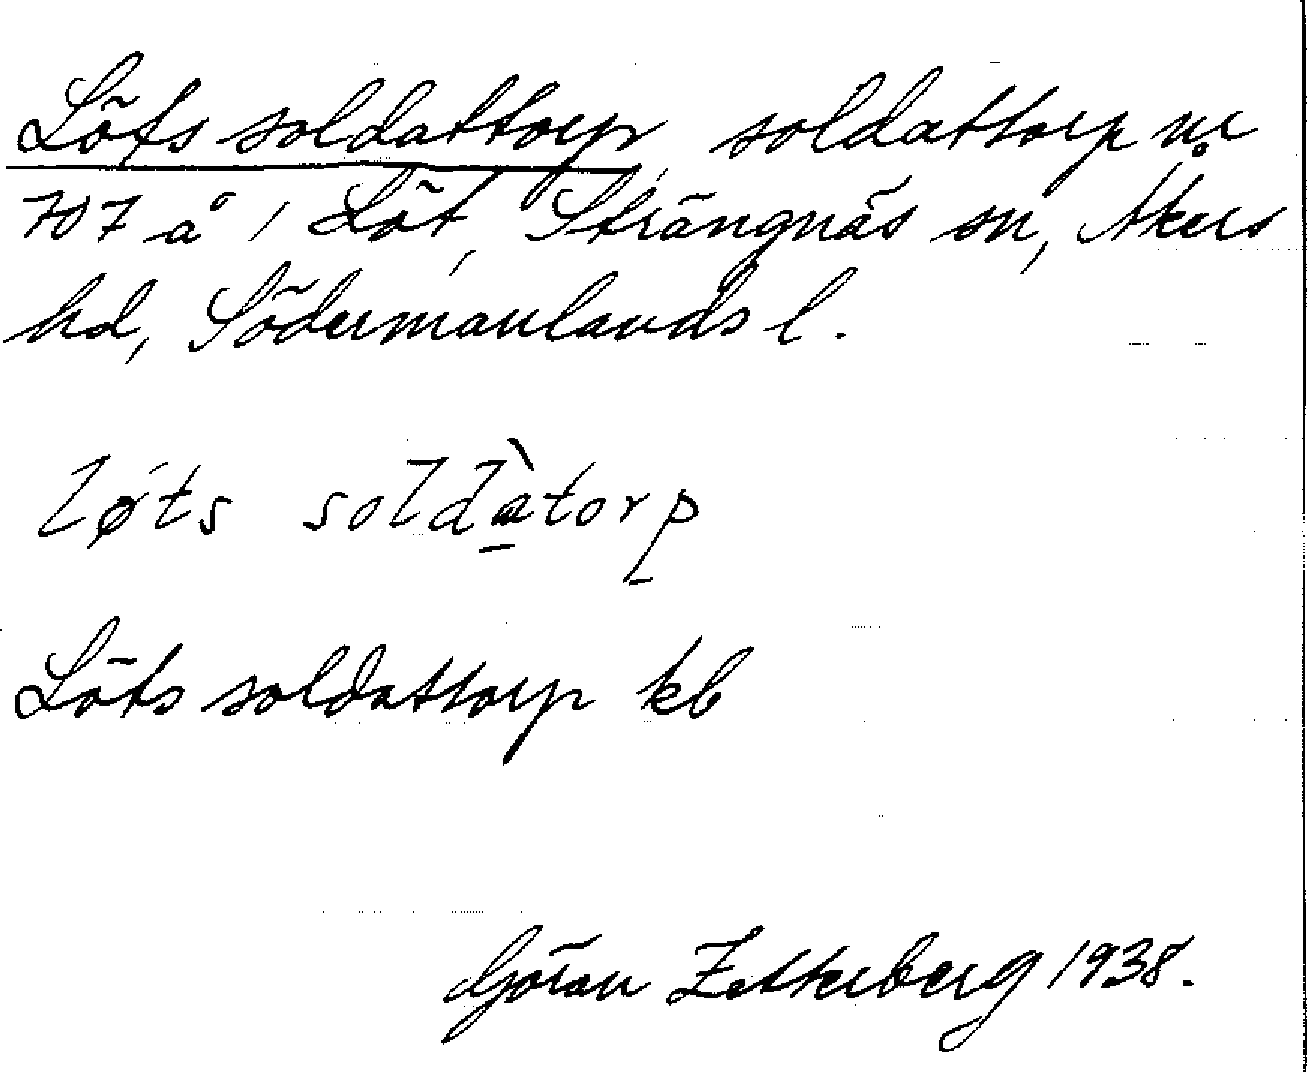 Löts soldattorp, soldattorp nr
707 å 1 Löt, Strängnäs sn, Åkers
hd, Södermanlands l.
løts soldàtorp
Löts soldattorp kb
Göran Zetterberg 1938.